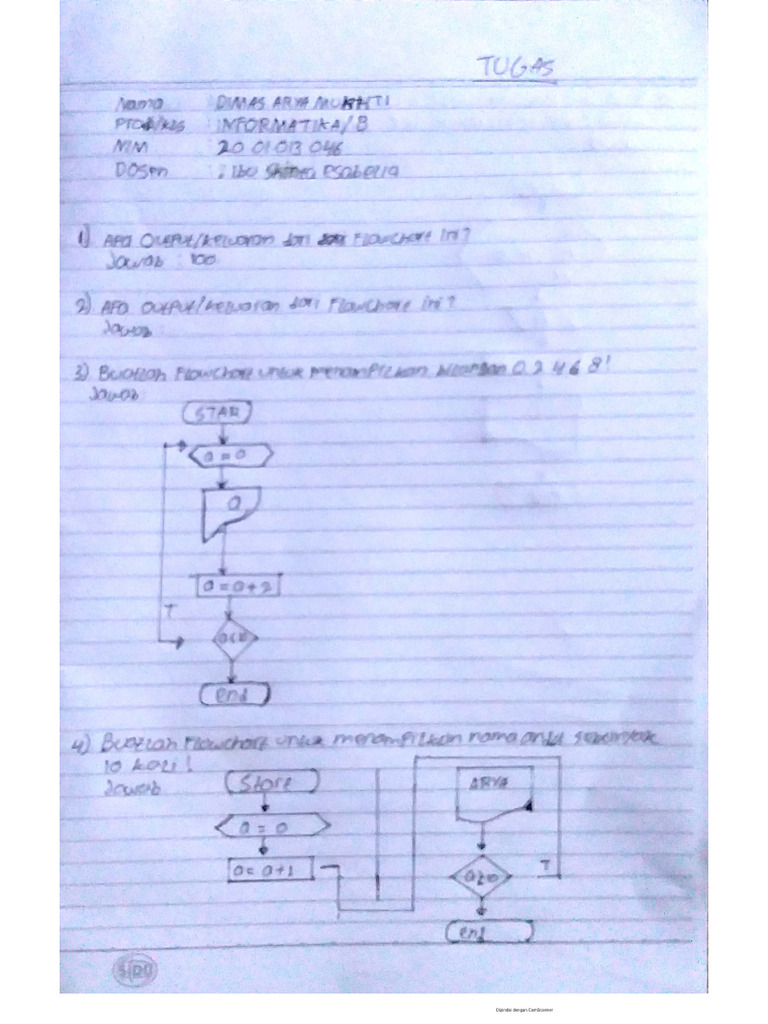 TUGAS
Nama : DIMAS ARYA MUKHTI
Prodi/kls : INFORMATIKA/B
NIM : 20 01 013 046
DOSen : Ibu Shinta Esabella
1) APa OutPut/keluaran dari Flowchart ini?
Jawab : 100
2) APa OutPut/keluaran dari Flowchart ini?
Jawab :
3) Buatlah Flowchart untuk menampilkan bilangan 0 2 4 6 8!
Jawab :
START
a = 0
a
a = a+2
T
end
4) Buatlah Flowchart untuk menampilkan nama anda sebanyak
10 kali!
Jawab
Start
a = 0
a = a+1
ARYA
T
end
SIDU
Dipindai dengan CamScanner